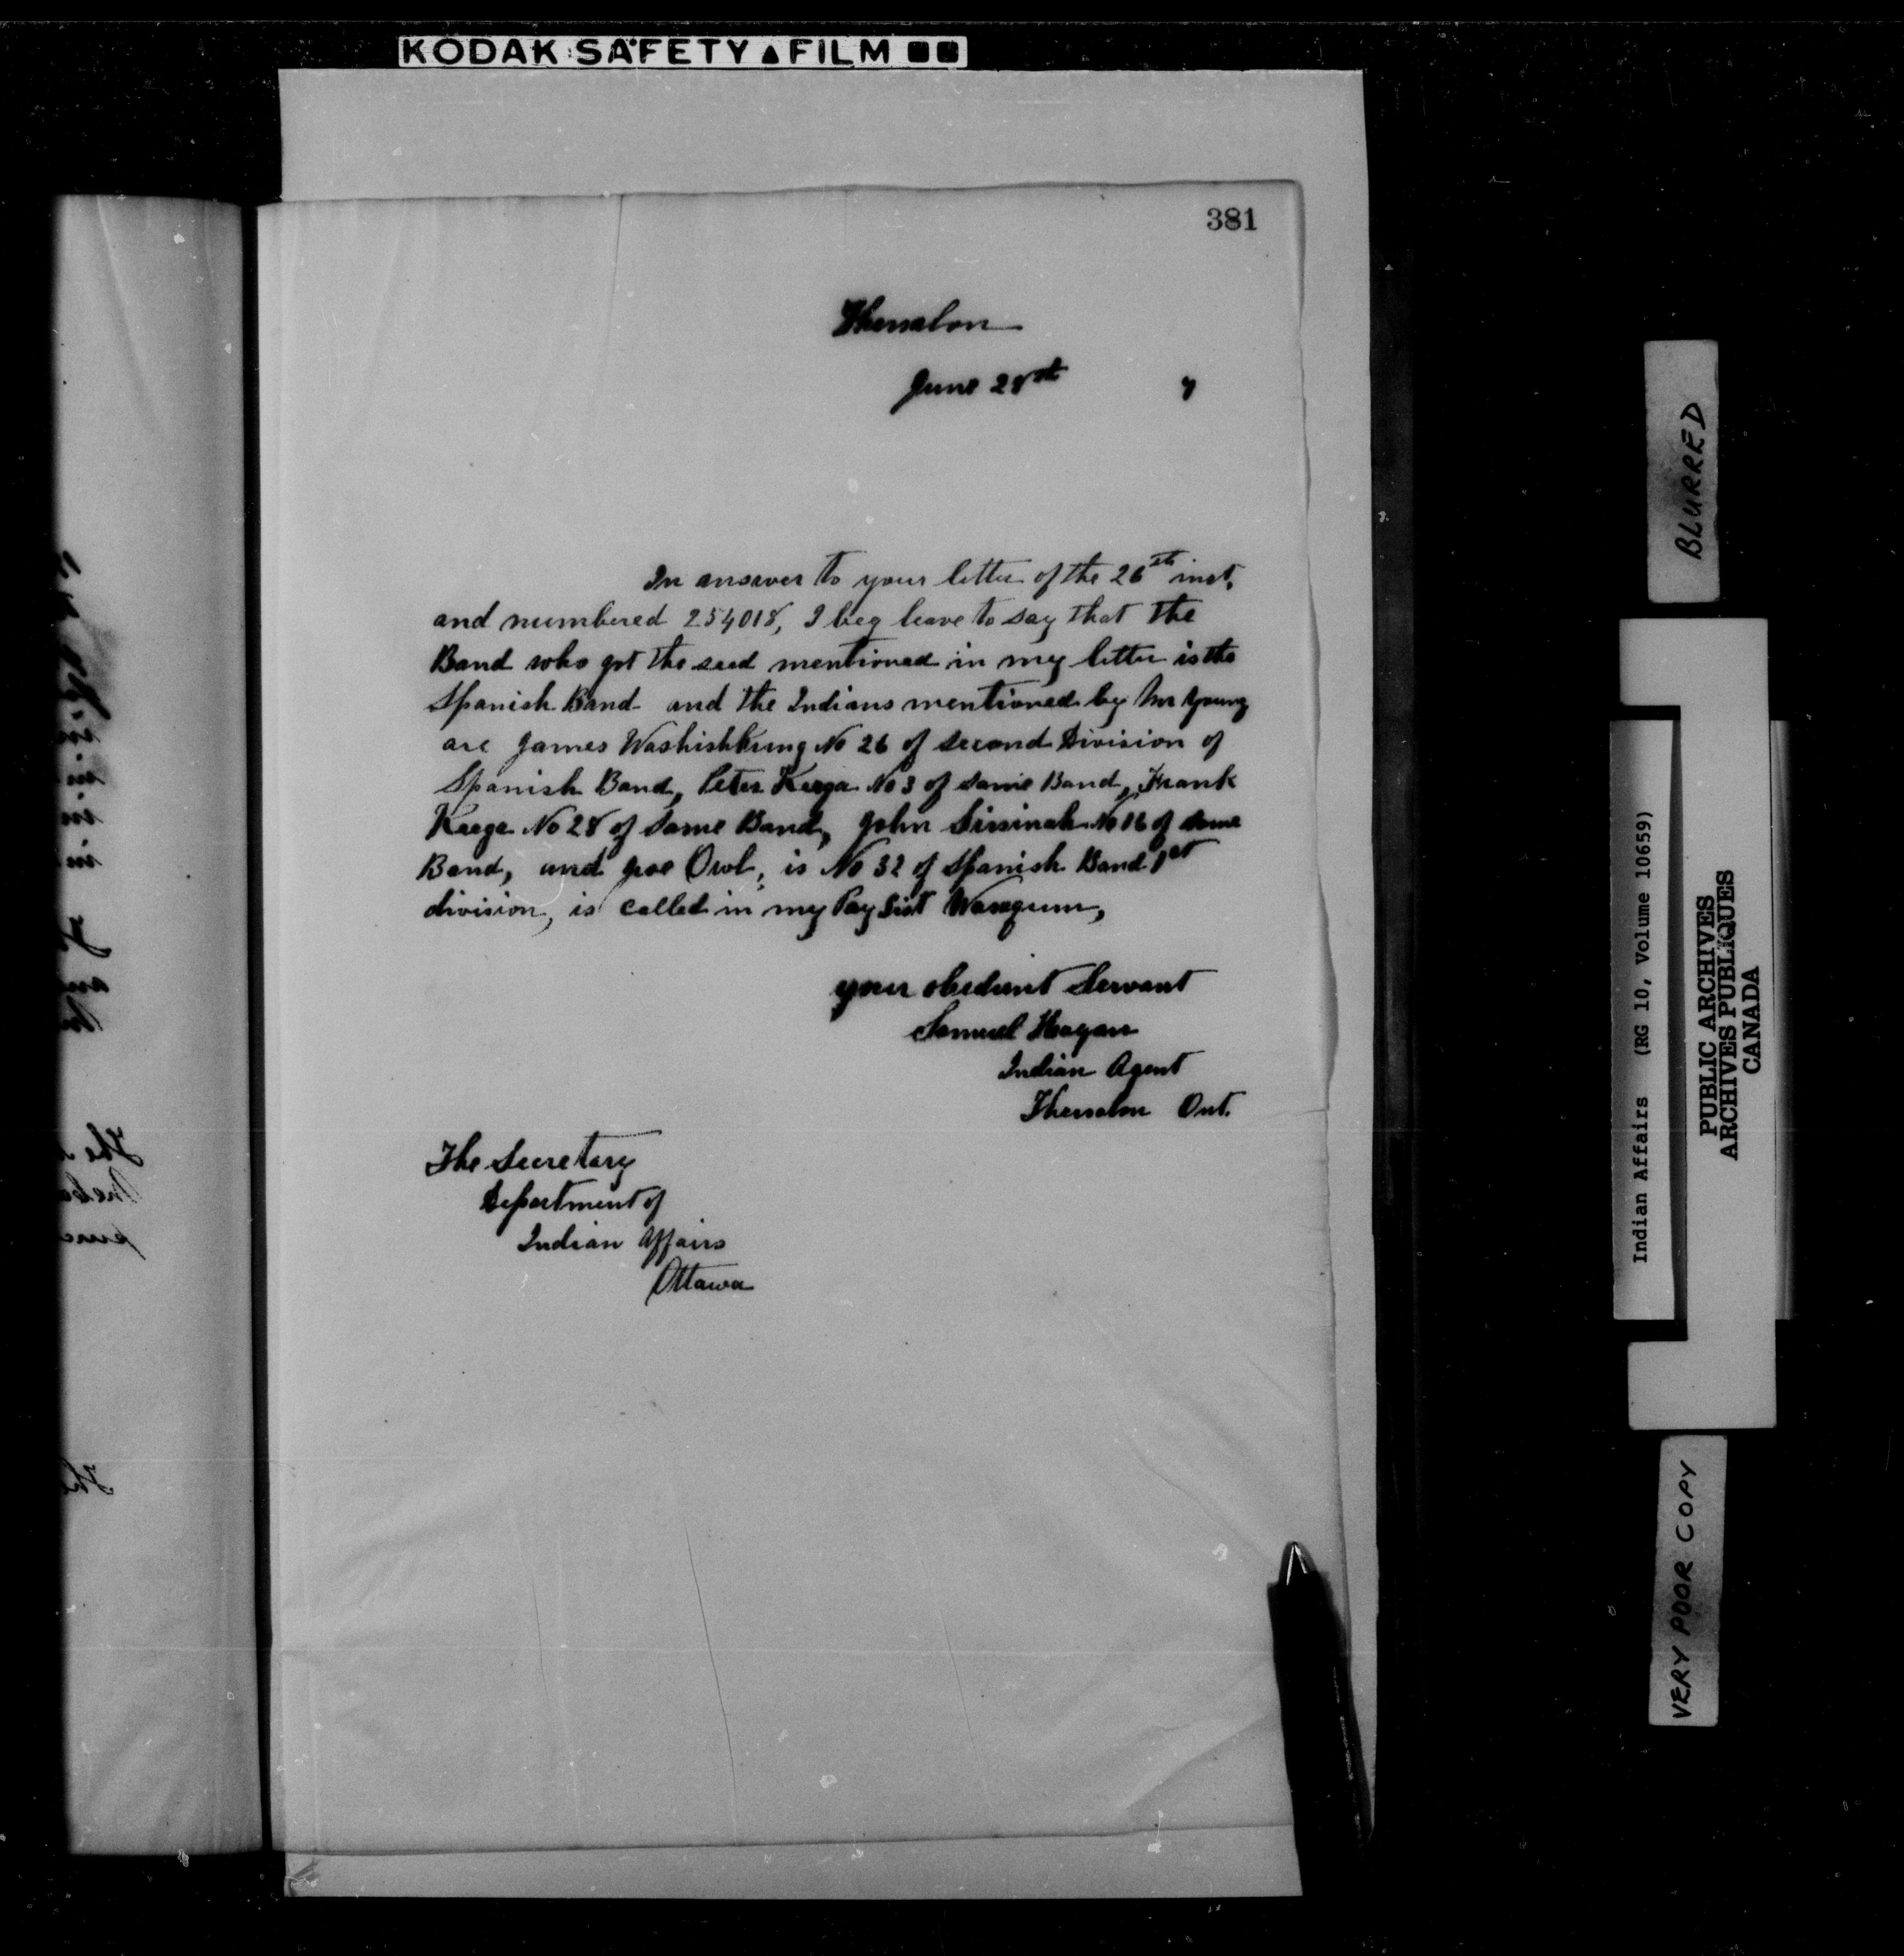 KODAK SAFETY ▲ FILM
381
Thessalon
June 28st 7
In answer to your letter of the 26th inst,
and numbered 254018, I beg leave to say that the
Band who got the seed mentioned in my letter is the
Spanish Band and the Indians mentioned by Mr Young
are James Washishkung No 26 of second Division of
Spanish Band, Peter Keega No 3 of same Band, Frank
Keega No 28 of same Band, John Sissinah No 16 of same
Band, and Joe Owl, is No 32 of Spanish Band 1st
division, is called in my Pay List
your obedient Servant
Samuel Hagan
Indian Agent
Thessalon Ont.
The Secretary
Department of
Indian Affairs
Ottawa
BLURRED
Indian Affairs (RG 10, Volume 10659)
PUBLIC ARCHIVES
ARCHIVES PUBLIQUES
CANADA
VERY POOR COPY